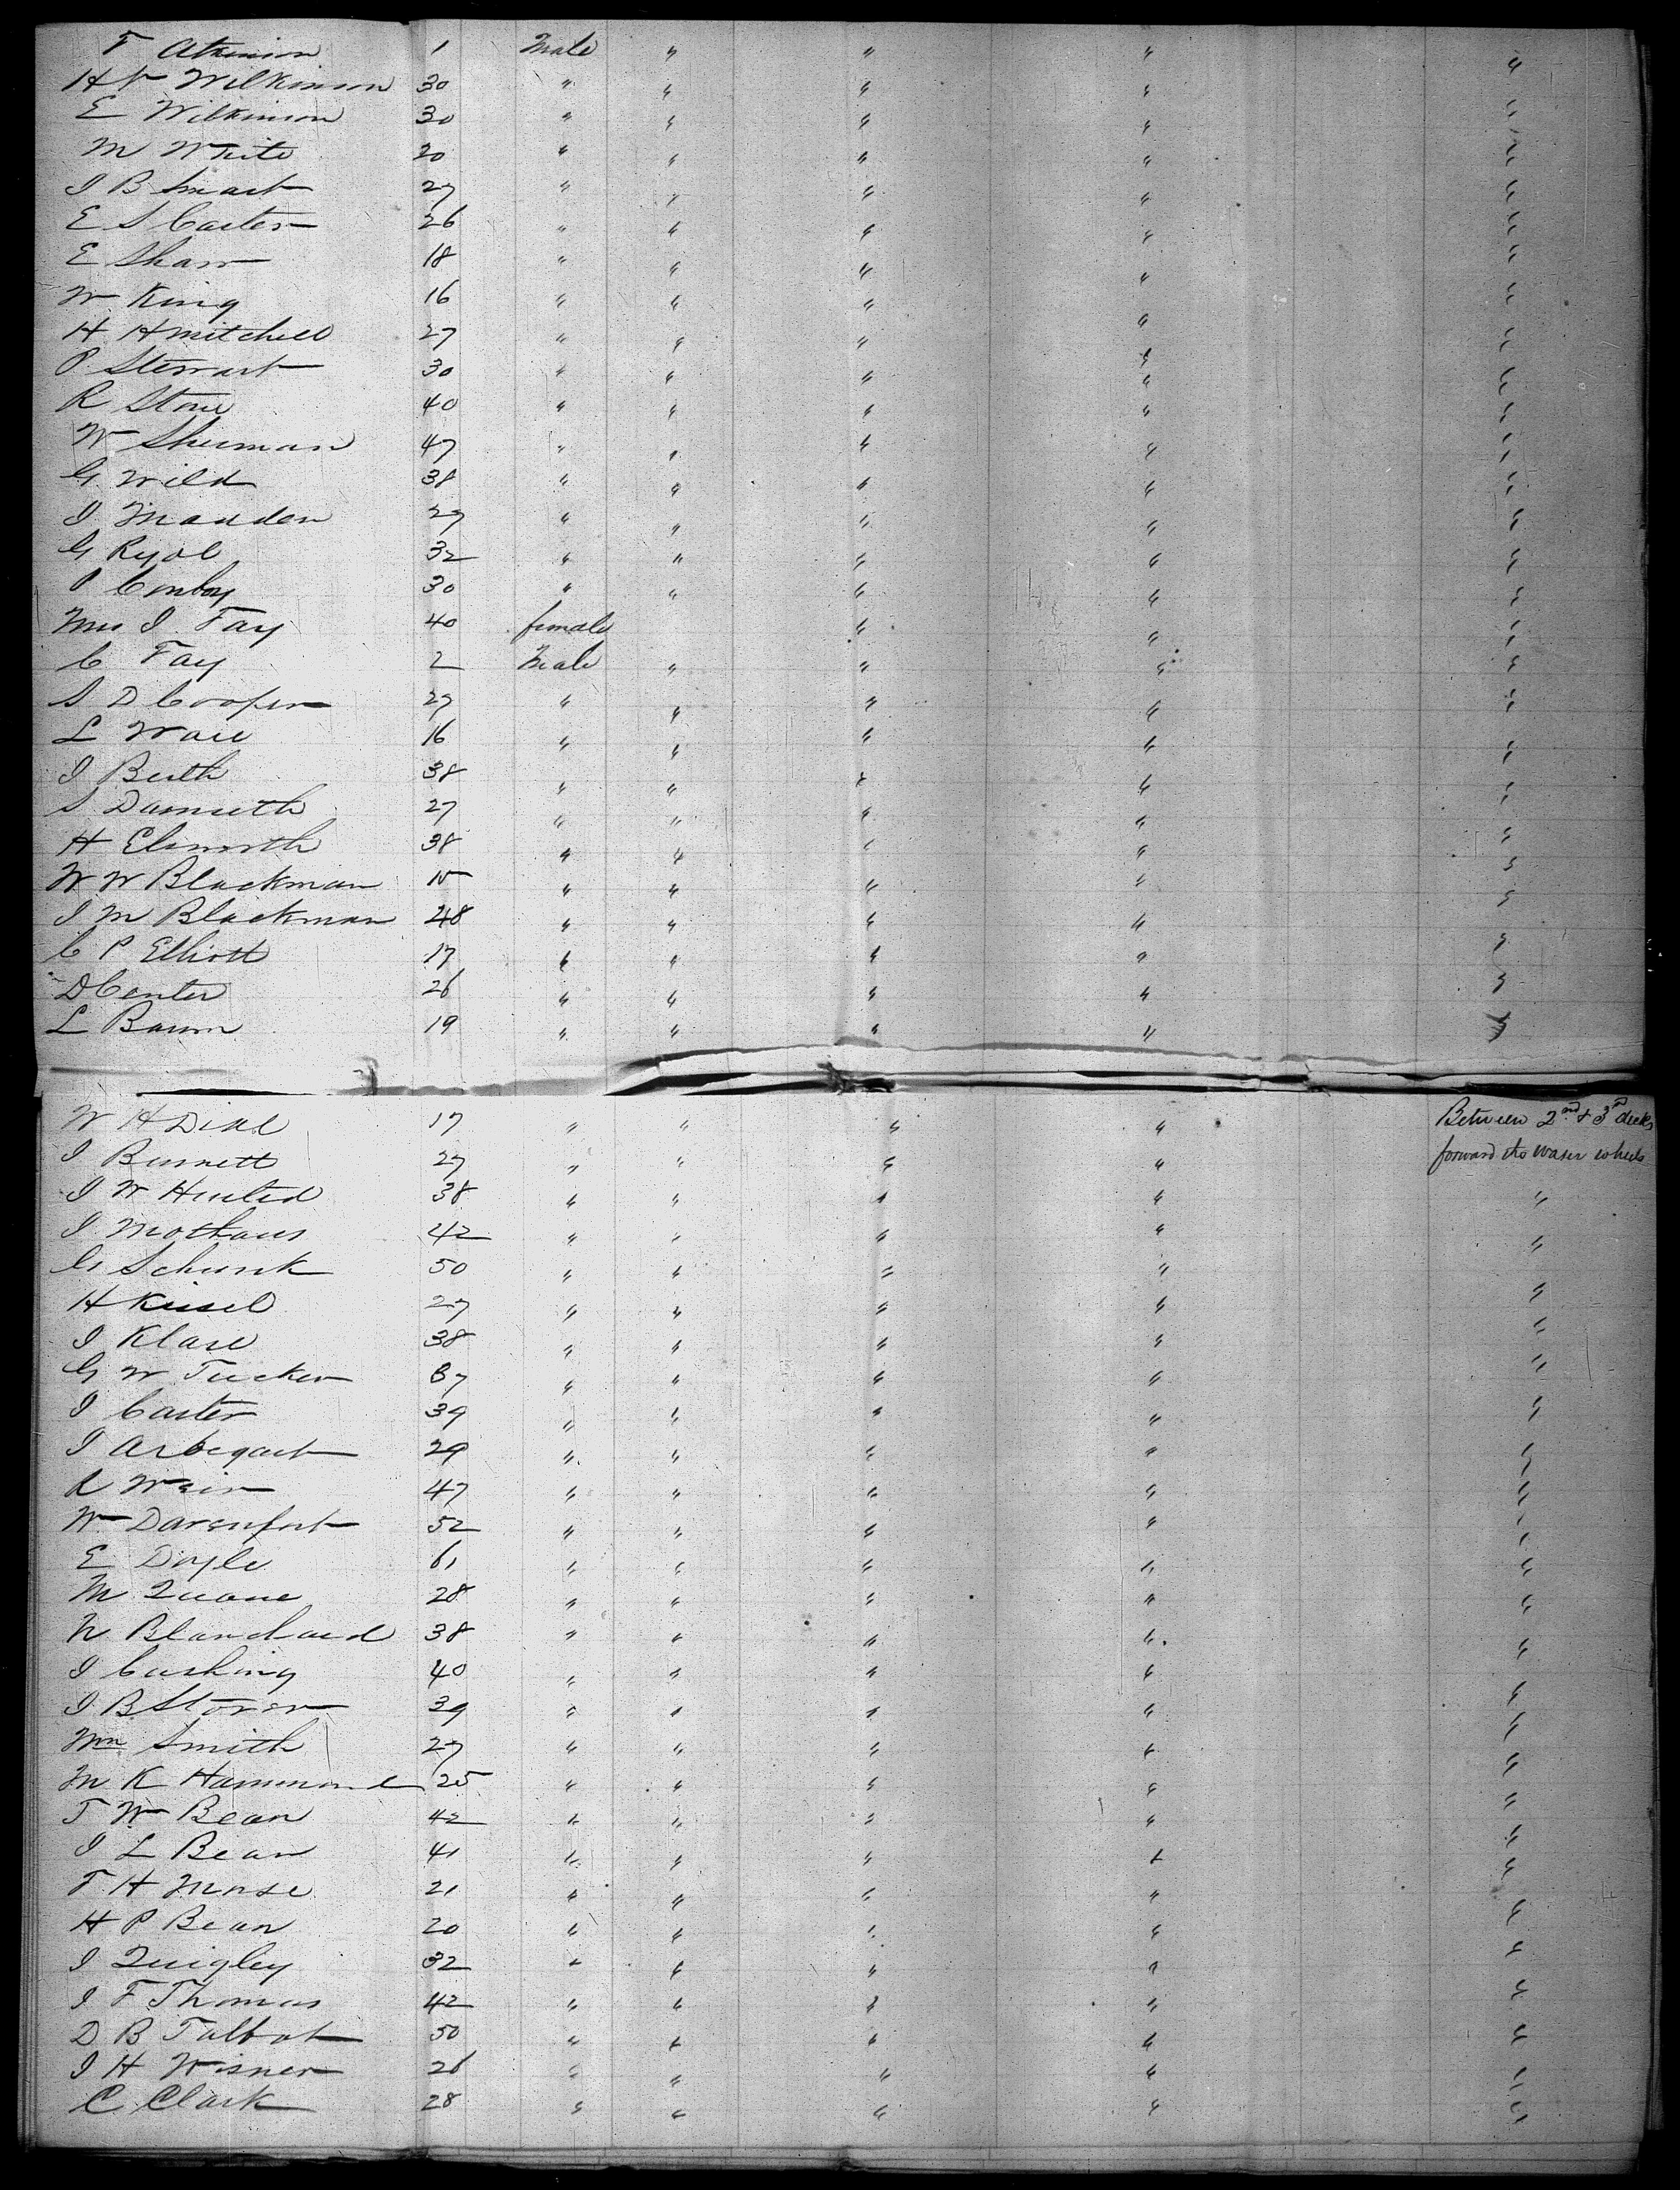 F Atkinson 1 Male " " " "
H F Wilkinson 30 " " " " "
E Wilkinson 30 " " " " "
M White 20 " " " " "
J B Smart 27 " " " " "
E S Carter 26 " " " " "
E Shaw 18 " " " " "
W King 16 " " " " "
H H Mitchell 27 " " " " "
P Stewart 30 " " " " "
R Stone 40 " " " " "
W Sherman 47 " " " " "
G Wild 38 " " " " "
J Madden 27 " " " " "
G Ryal 32 " " " " "
P Conboy 30 " " " " "
Mrs J Fay 40 female " " "
C Fay 2 Male " " " "
S D Cooper 27 " " " " "
L Ware 16 " " " " "
J Beeth 38 " " " " "
S Damuth 27 " " " " "
H Elsworth 38 " " " " "
W W Blackman 15 " " " " "
J M Blackman 48 " " " " "
C P Elliott 17 " " " " "
D Center 26 " " " " "
L Baum 19 " " " " "
W H Dial 17 " " " " Between 2nd & 3rd decks
J Burnett 27 " " " " forward the water wheels
J W Husted 38 " " " " "
J Mothaus 42 " " " " "
G Schunk 50 " " " "
H Kissel 27 " " " " "
J Klase 38 " " " " "
G W Tucker 37 " " " " "
J Carter 39 " " " " "
J Arbegast 29 " " " " "
R Weir 47 " " " " "
W Davenport 52 " " " " "
E Doyle 61 " " " " "
M Quane 28 " " " " "
N Blanchard 38 " " " " "
J Cushing 40 " " " " "
J B Storer 39 " " " " "
Wm Smith 27 " " " " "
M K Hammond 25 " " " " "
T W Bean 42 " " " " "
J L Bean 41 " " " " "
F H Morse 21 " " " " "
H P Bean 20 " " " " "
J Quigley 32 " " " " "
J F Thomas 42 " " " " "
D B Talbot 50 " " " " "
J H Wisner 26 " " " " "
C Clark 28 " " " " "